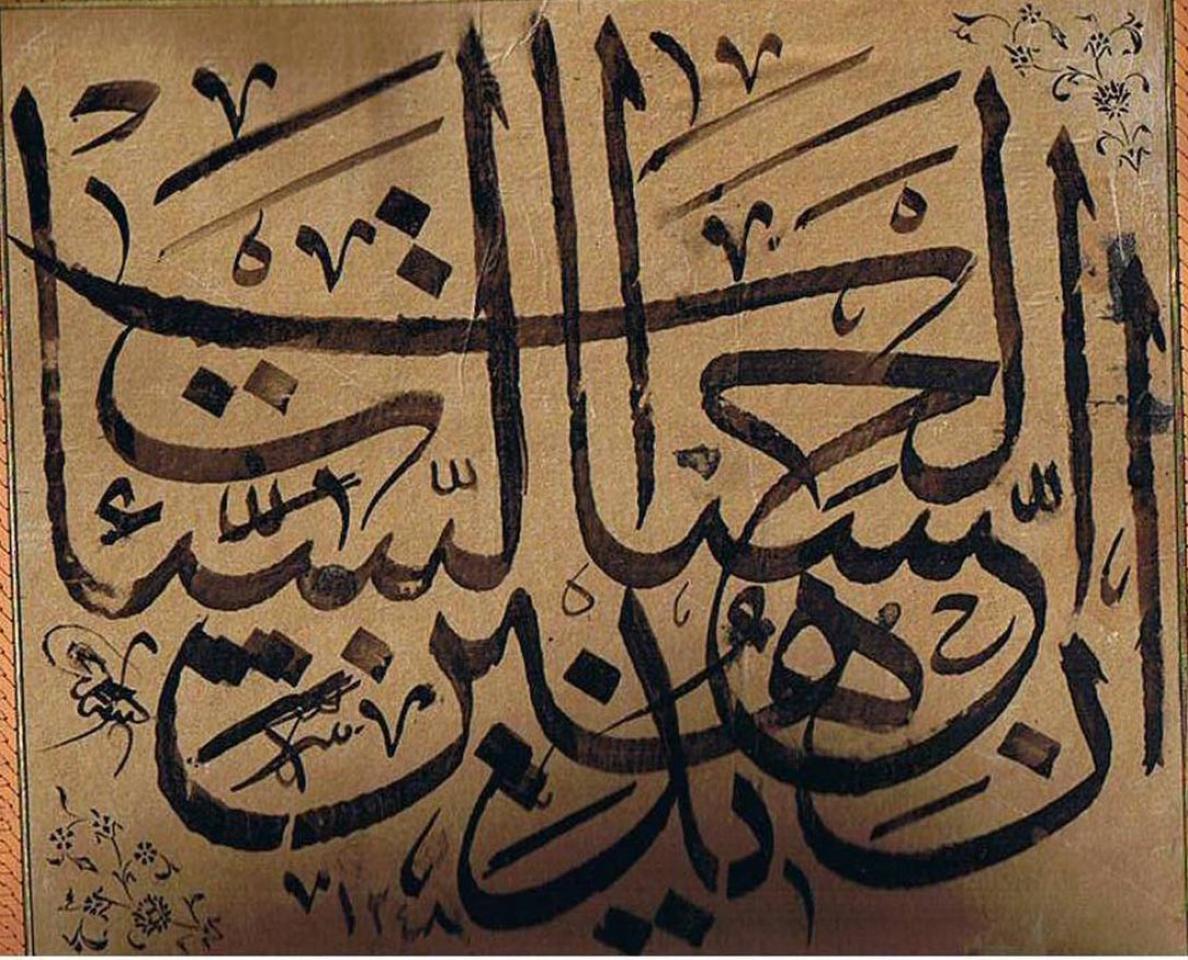 إِنَّ الْحَسَنَاتِ يُذْهِبْنَ السَّيِّئَاتِ